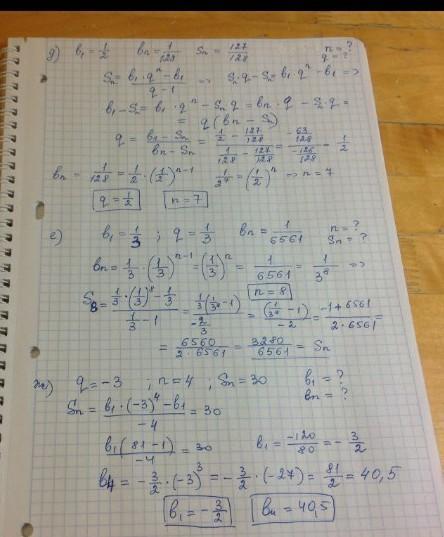 д) b₁ = 1/2 bn = 1/128 Sn = 127/128 n = ? q = ?
Sn = (b₁ · qⁿ − b₁)/(q − 1) => Sn·q − Sn = b₁qⁿ − b₁ =>
b₁ − Sn = b₁ · qⁿ − Sn q = bn · q − Sn q =
= q (bn − Sn)
q = (b₁ − Sn)/(bn − Sn) = (1/2 − 127/128)/(1/128 − 127/128) = (−63/128)/(−126/128) = 1/2
bn = 1/128 = 1/2 · (1/2)ⁿ⁻¹ 1/2⁷ = (1/2)ⁿ => n = 7
q = 1/2 n = 7
е) b₁ = 1/3 ; q = 1/3 bn = 1/6561 n = ? Sn = ?
bn = 1/3 · (1/3)ⁿ⁻¹ = (1/3)ⁿ = 1/6561 = 1/3⁸ =>
n = 8
S₈ = (1/3 · (1/3)⁸ − 1/3)/(1/3 − 1) = (1/3 (1/3⁸ − 1))/(−2/3) = (1/3⁸ − 1)/−2 = (−1 + 6561)/(2 · 6561) =
= 6560/(2 · 6561) = 3280/6561 = Sn
ж) q = −3 ; n = 4 ; Sn = 30 b₁ = ? bn = ?
Sn = (b₁ · (−3)⁴ − b₁)/−4 = 30
b₁(81 − 1)/−4 = 30 b₁ = −120/80 = −3/2
b₄ = −3/2 · (−3)³ = −3/2 · (−27) = 81/2 = 40,5
b₁ = −3/2 b₄ = 40,5